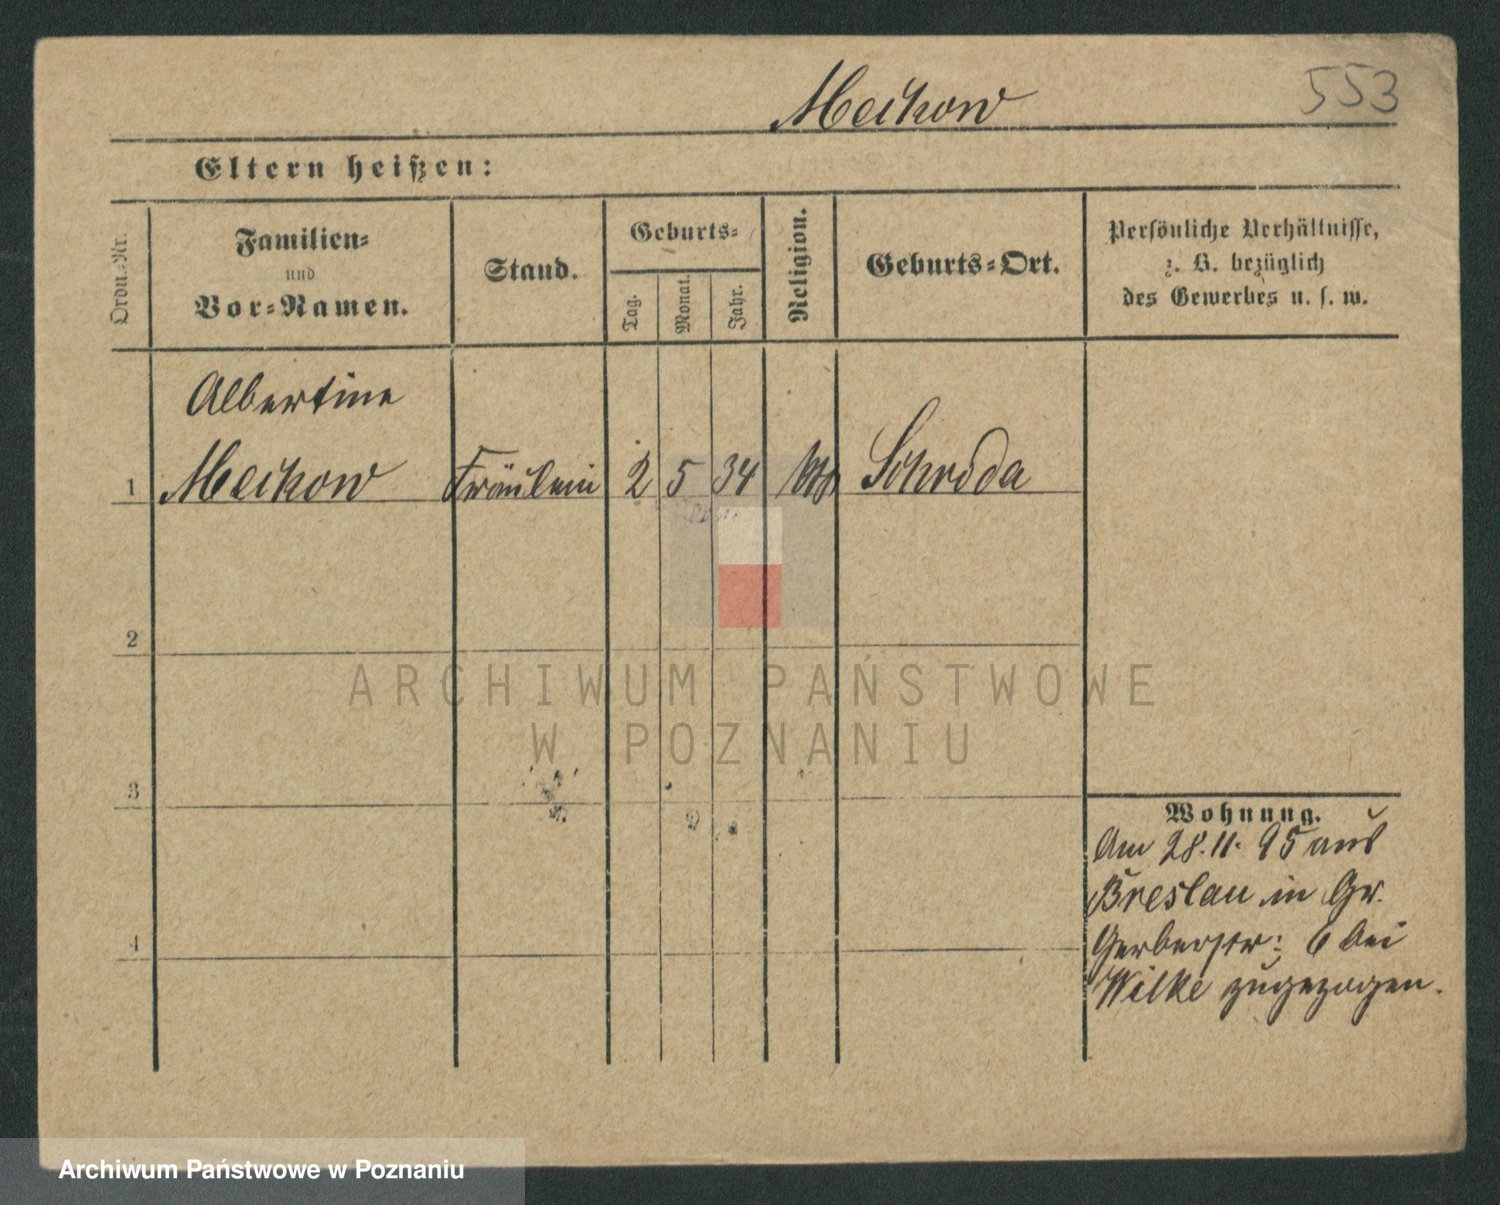 Meihow
553
Eltern heißen:
Ordn.=Nr.
Familien=
und
Vor=Namen.
Stand.
Geburts=
Tag.
Monat.
Jahr.
Religion.
Geburts=Ort.
Persönliche Verhältnisse,
z. B. bezüglich
des Gewerbes u. s. w.
Albertine
1 Meihow Fräulein 2 5 34 Schroda
2
3
4
Wohnung.
Am 28.11.95 aus
Breslau in Gr.
Gerberstr: 6 bei
Wilke zugezogen.
ARCHIWUM PAŃSTWOWE
W POZNANIU
Archiwum Państwowe w Poznaniu